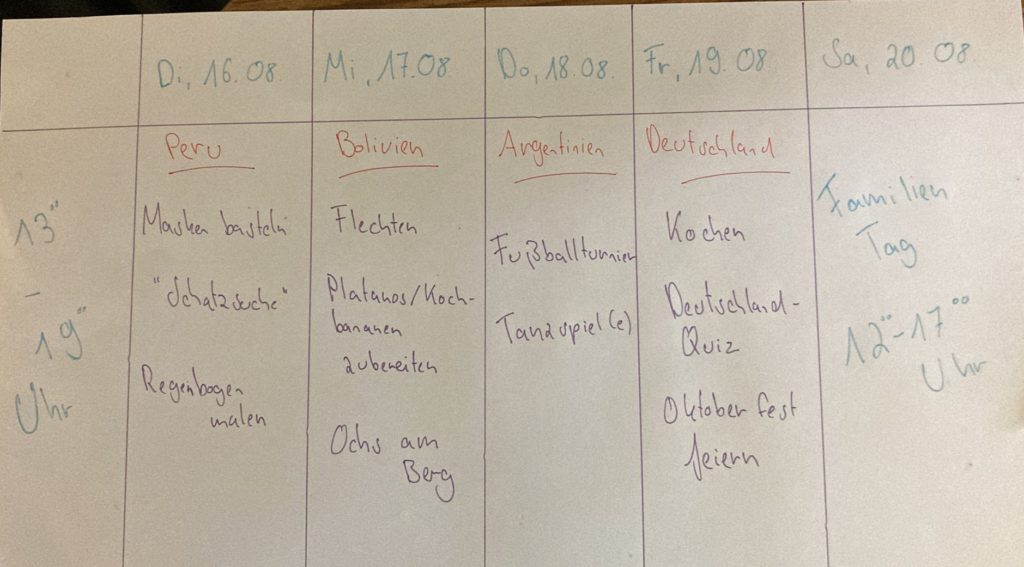 Di, 16.08.
Mi, 17.08
Do, 18.08.
Fr, 19.08
Sa, 20.08
13°°
–
19°°
Uhr
Peru
Masken basteln
"Schatzsuche"
Regenbogen
malen
Bolivien
Flechten
Platanos/Koch-
bananen
zubereiten
Ochs am
Berg
Argentinien
Fußballturnier
Tanzspiel(e)
Deutschland
Kochen
Deutschland-
Quiz
Oktoberfest
feiern
Familien
Tag
12°°-17°°
Uhr